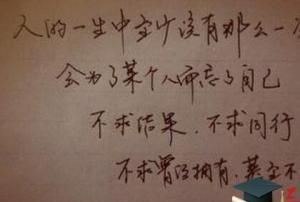 人的一生中至少该有那么一
会为了某个人而忘了自己
不求结果.不求同行
不求曾经拥有.甚至不